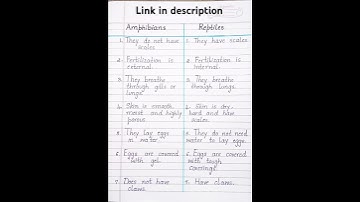 Link in description
Amphibians Reptiles
1. They do not have scales
1. They have scales
2. Fertilization is external.
2. Fertilization is internal.
3. They breathe through gills or lungs
3. They breathe through lungs.
4. Skin is smooth moist and highly porous
4. Skin is dry, hard and have scales
5. They lay eggs in water
5. They do not need water to lay eggs.
6. Eggs are covered with gel.
6. Eggs are covered with tough coverings.
7. Does not have claws
7. Have claws.